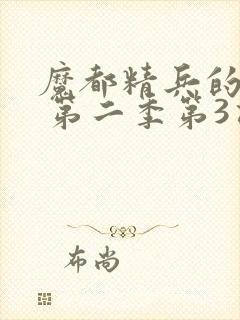 魔都精兵的
第二季第3
布尚